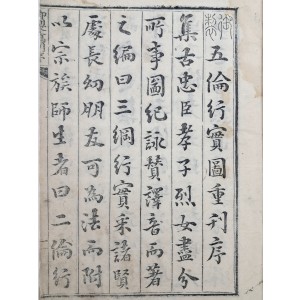 御製
五倫行實圖重刊序
集古忠臣孝子烈女盡分
所事圖紀詠贊譯音而著
之編曰三綱行實采諸賢
處長幼朋友可為法而附
以宗族師生者曰二倫行